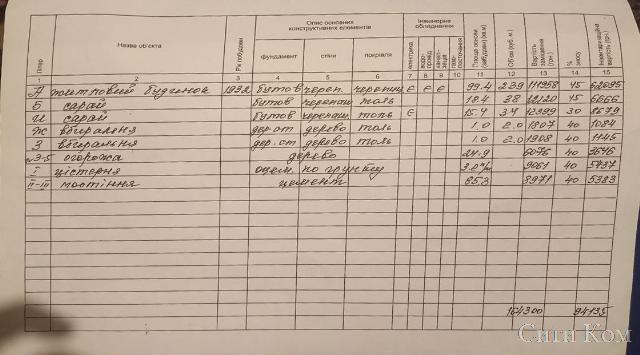 Літер
Назва об'єкта
Рік побудови
Опис основних конструктивних елементів
Інженерне обладнання
Площа основи (забудови) (кв.м)
Об'єм (куб. м)
Вартість заміщення (грн.)
% зносу
Інвентаризаційна вартість (грн.)
фундамент стіни покрівля електрика
1 2 3 4 5 6 7 8 9 10 11 12 13 14 15
А житловий будинок 1932 бутов череп. черепиц є є є 99.4 239 45
Б сарай бутов черепаш толь 18.4 38 45 6666
И сарай бутов черепаш толь є 15.4 34 12399 30 8679
Ж вбиральня дер.от дерево толь 1.0 2.0 1807 40 1084
З вбиральня дер.от дерево толь 1.0 2.0 1908 40 1145
огорожа дерево 24.9 40
І цістерна оцем. по грунту 40
ІІ-ІІІ мостіння цемент 85.3 8971 40 5383
164300 94135
Сити Ком